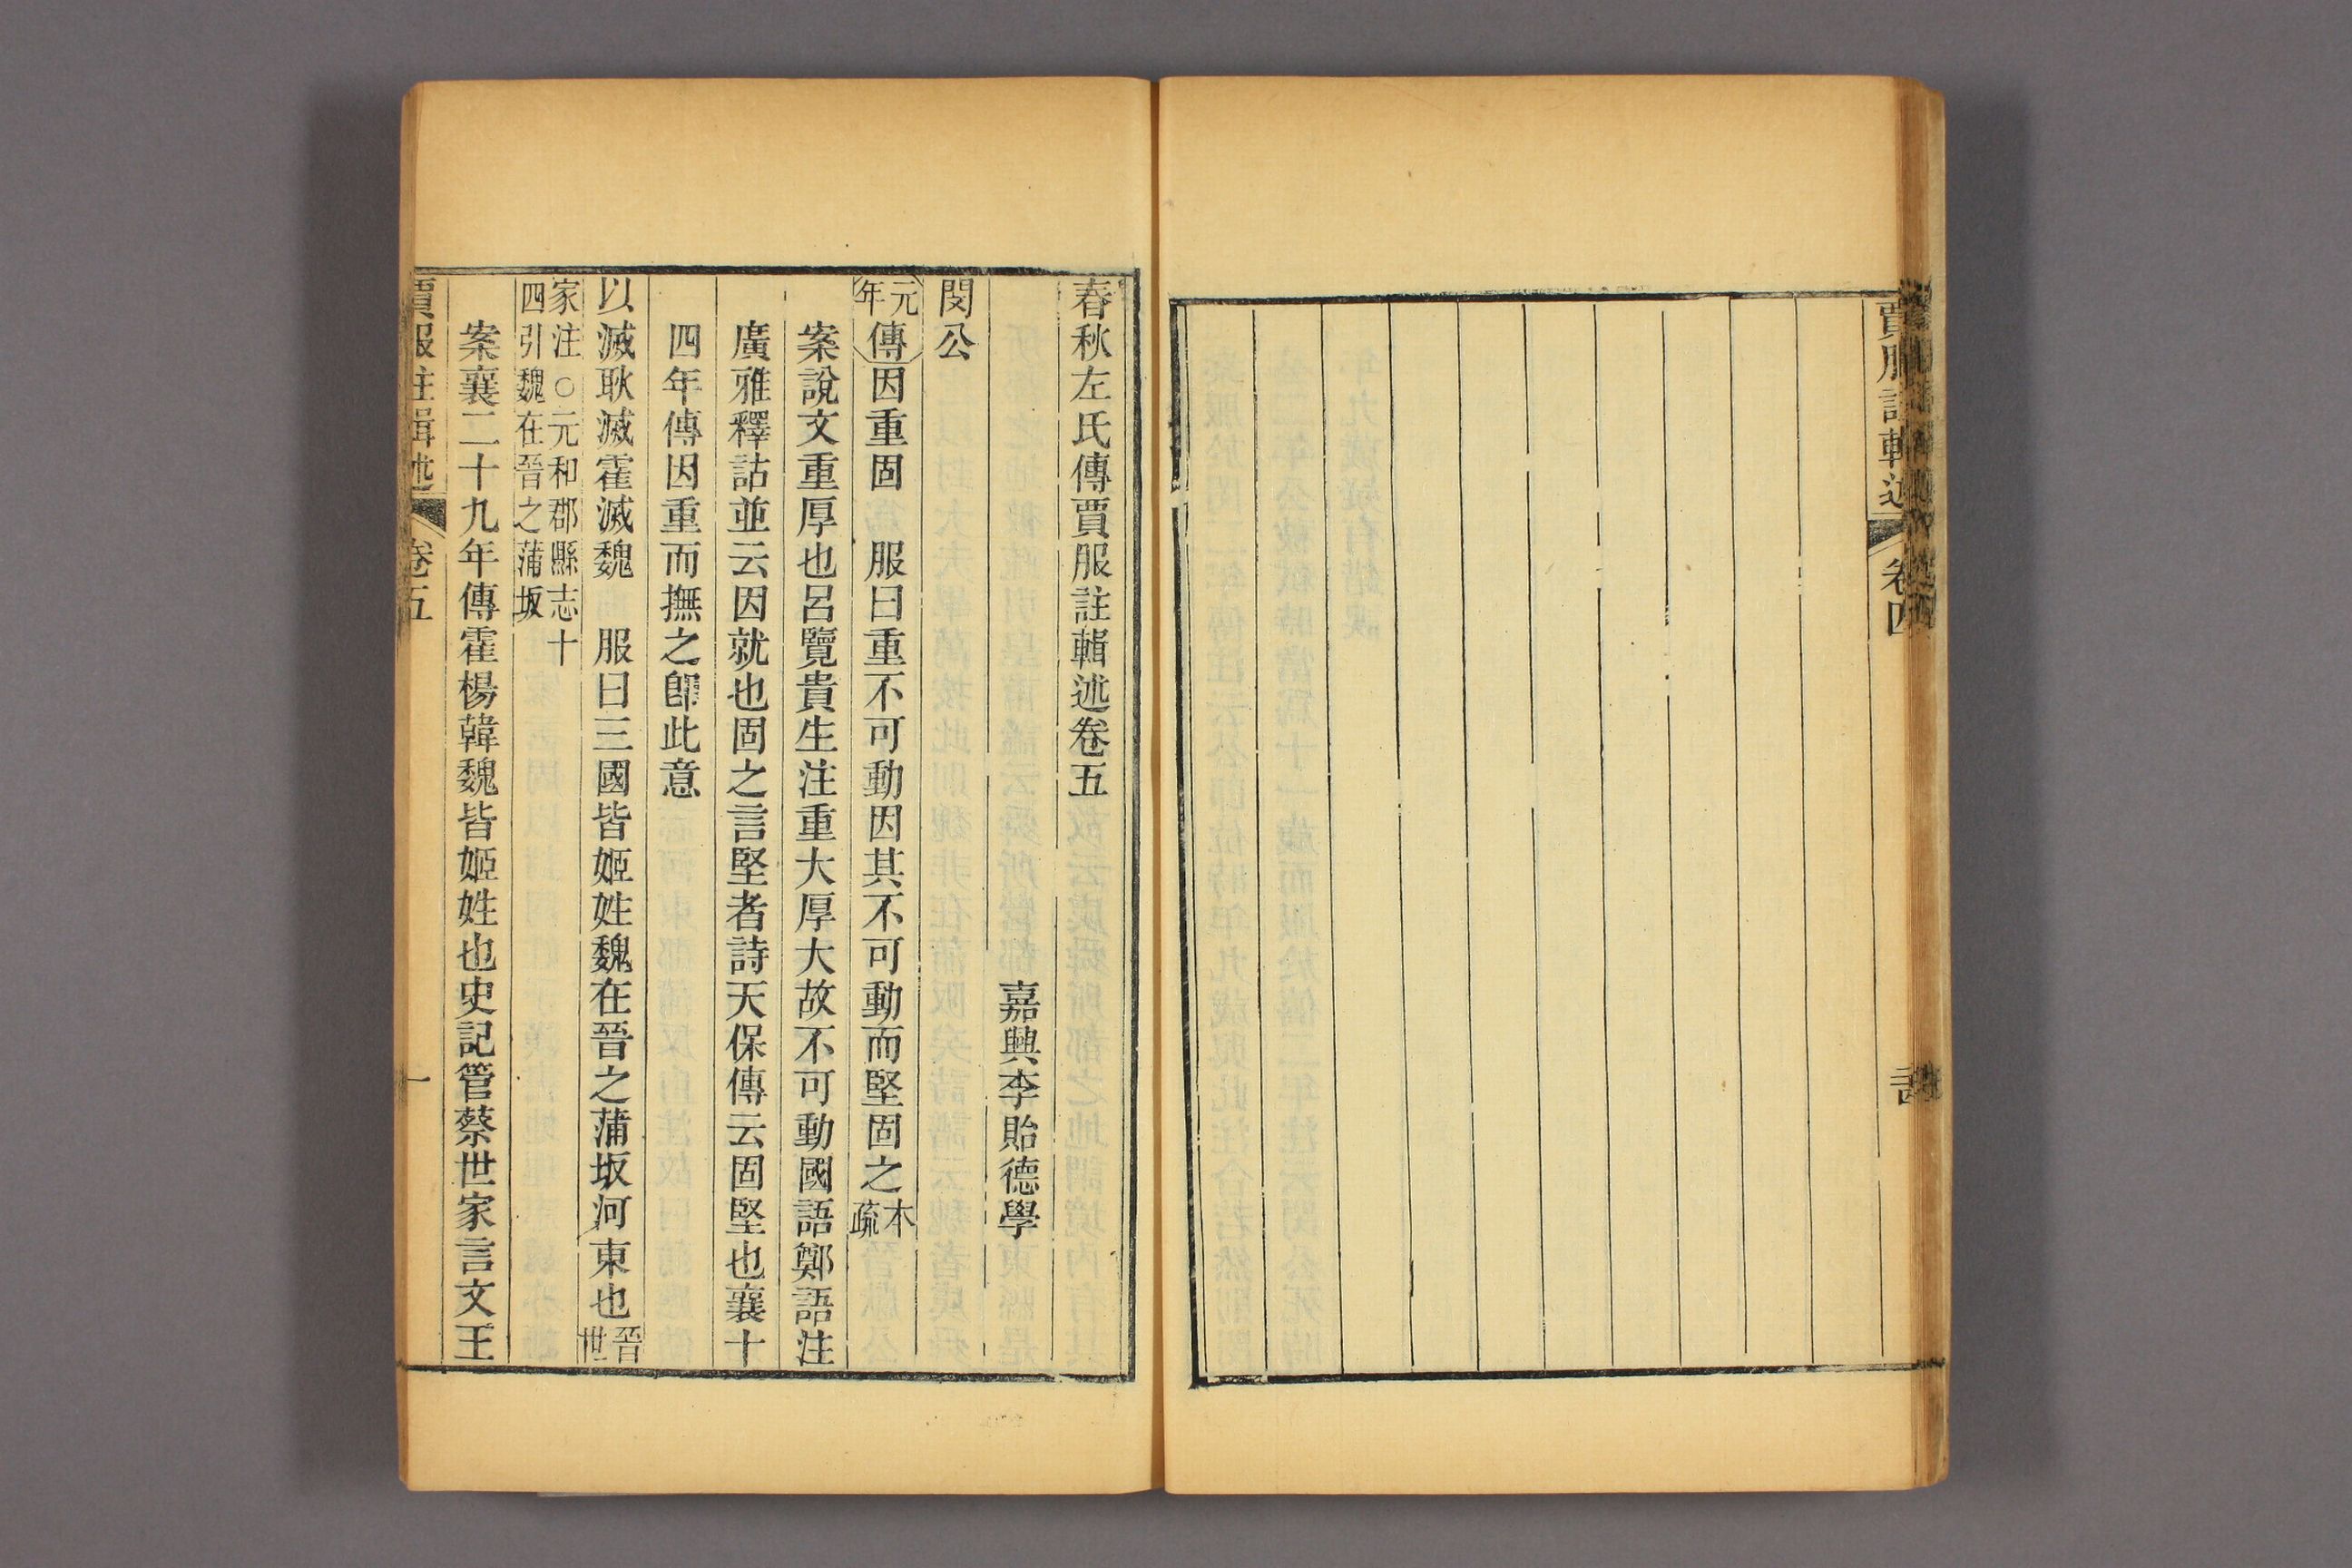 賈服註輯述
卷四
春秋左氏傳賈服註輯述卷五
嘉興李貽德學
閔公
元年傳因重固　服曰重不可動因其不可動而堅固之本疏
案說文重厚也呂覽貴生注重大厚大故不可動國語鄭語注
廣雅釋詁並云因就也固之言堅者詩天保傳云固堅也襄十
四年傳因重而撫之卽此意
以滅耿滅霍滅魏　服曰三國皆姬姓魏在晉之蒲坂河東也晉世
家注○元和郡縣志十
四引魏在晉之蒲坂
案襄二十九年傳霍楊韓魏皆姬姓也史記管蔡世家言文王
賈服註輯述
卷五
一